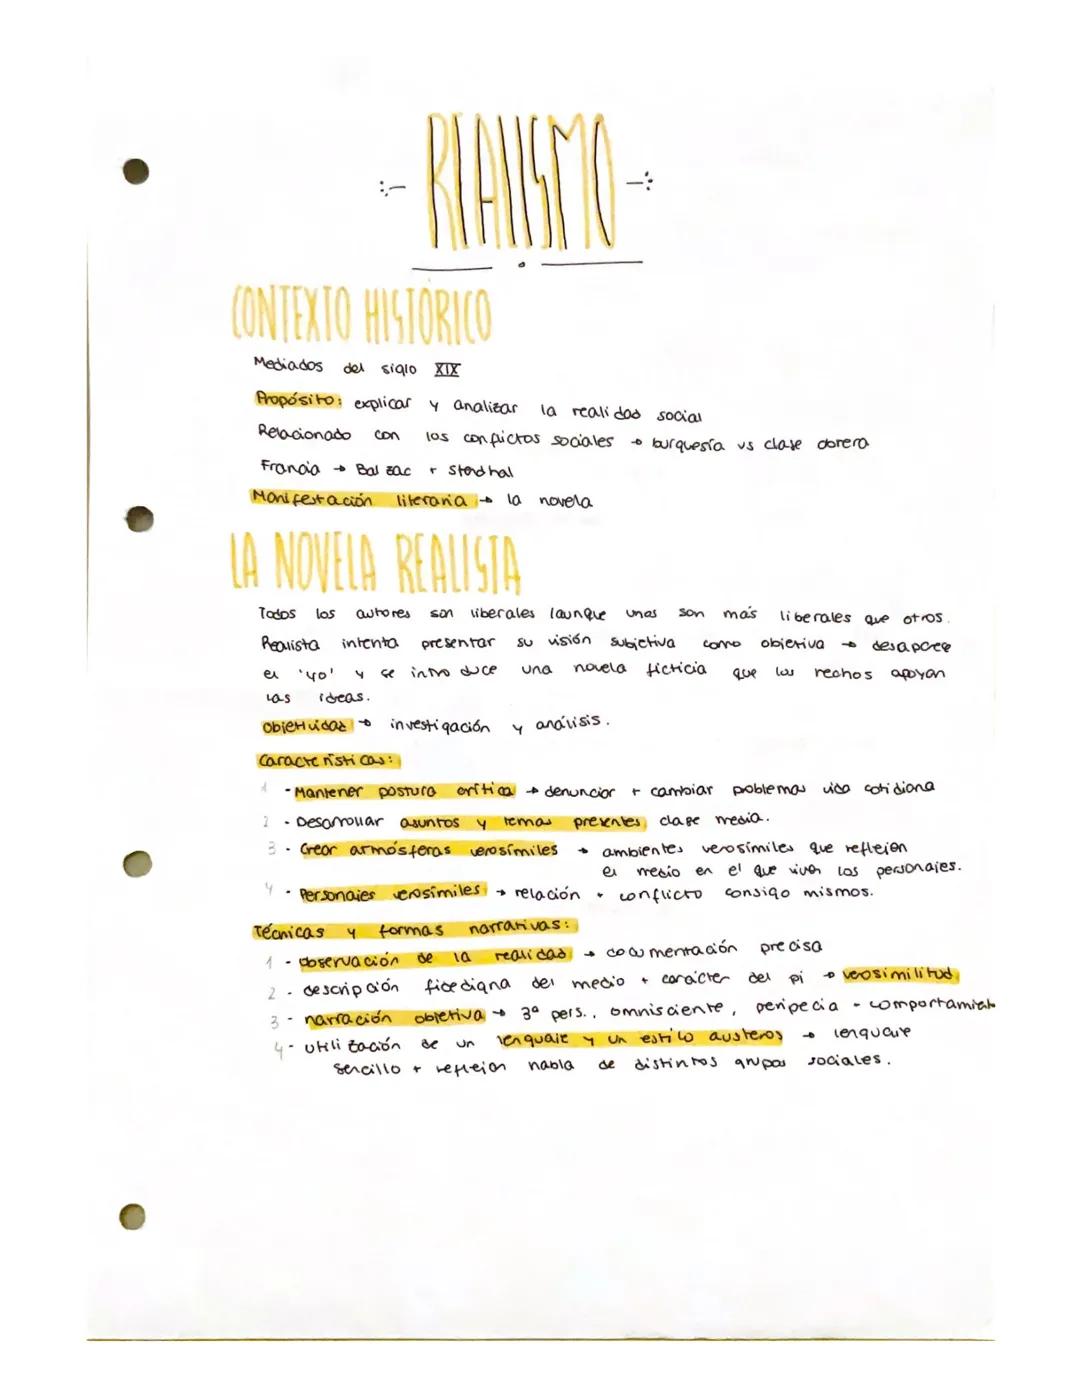 REALISMO
CONTEXTO HISTÓRICO
Mediados del siglo XIX
Propósito: explicar y analizar la realidad social
Relacionado con los conflictos sociales → burguesía vs clase obrera
Francia → Balzac + Stendhal
Manifestación literaria → la novela
LA NOVELA REALISTA
Todos los autores son liberales (aunque unos son más liberales que otros.
Realista intenta presentar su visión subjetiva como objetiva → desaparece
el 'yo' y se introduce una novela ficticia que los hechos apoyan
las ideas.
Objetividad → investigación y análisis.
Características:
1 - Mantener postura crítica → denunciar + cambiar problemas vida cotidiana
2 - Desarrollar asuntos y temas presentes clase media.
3 - Crear atmósferas verosímiles → ambientes verosímiles que reflejen
el medio en el que viven los personajes.
4 - Personajes verosímiles → relación + conflicto consigo mismos.
Técnicas y formas narrativas:
1 - Observación de la realidad → documentación precisa
2 - descripción fidedigna del medio + carácter del pj → verosimilitud
3 - narración objetiva → 3ª pers., omnisciente, peripecia - comportamiento
4 - utilización de un lenguaje y un estilo austeros → lenguaje
sencillo + reflejan habla de distintos grupos sociales.